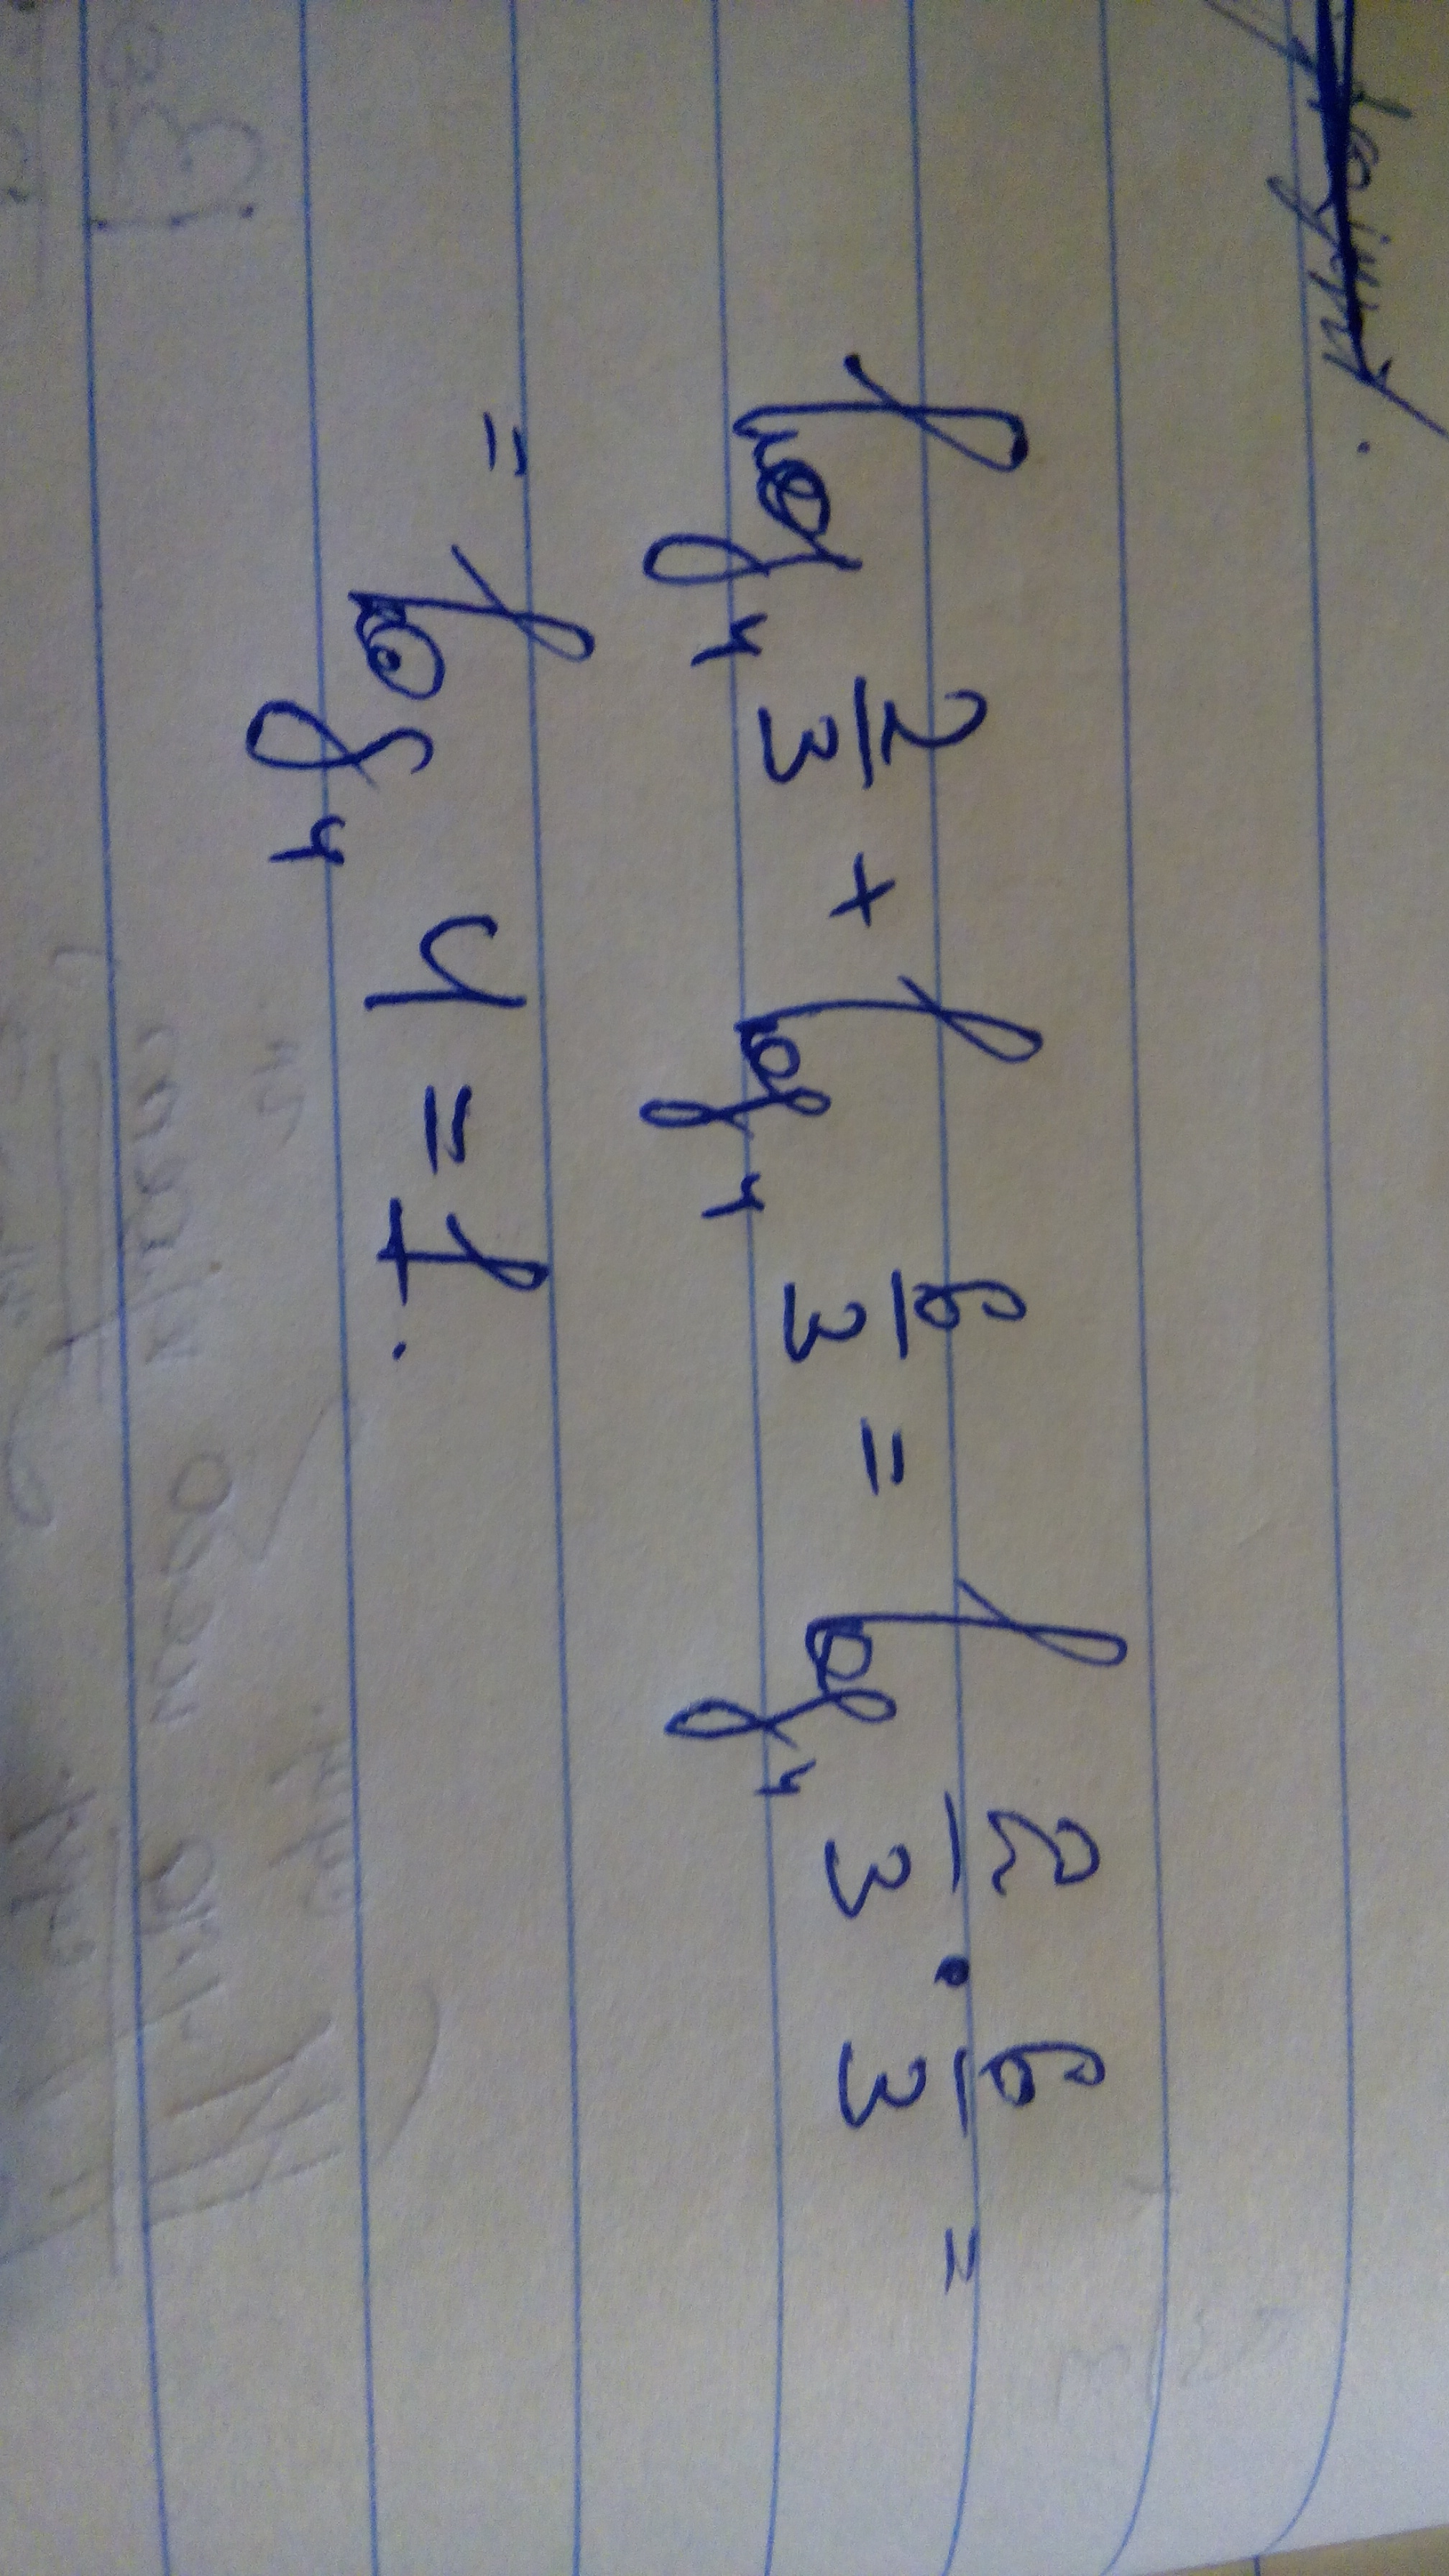 log₄ 2/3 + log₄ 6/3 = log₄ 2/3 · 6/3 =
= log₄ 4 = 1.